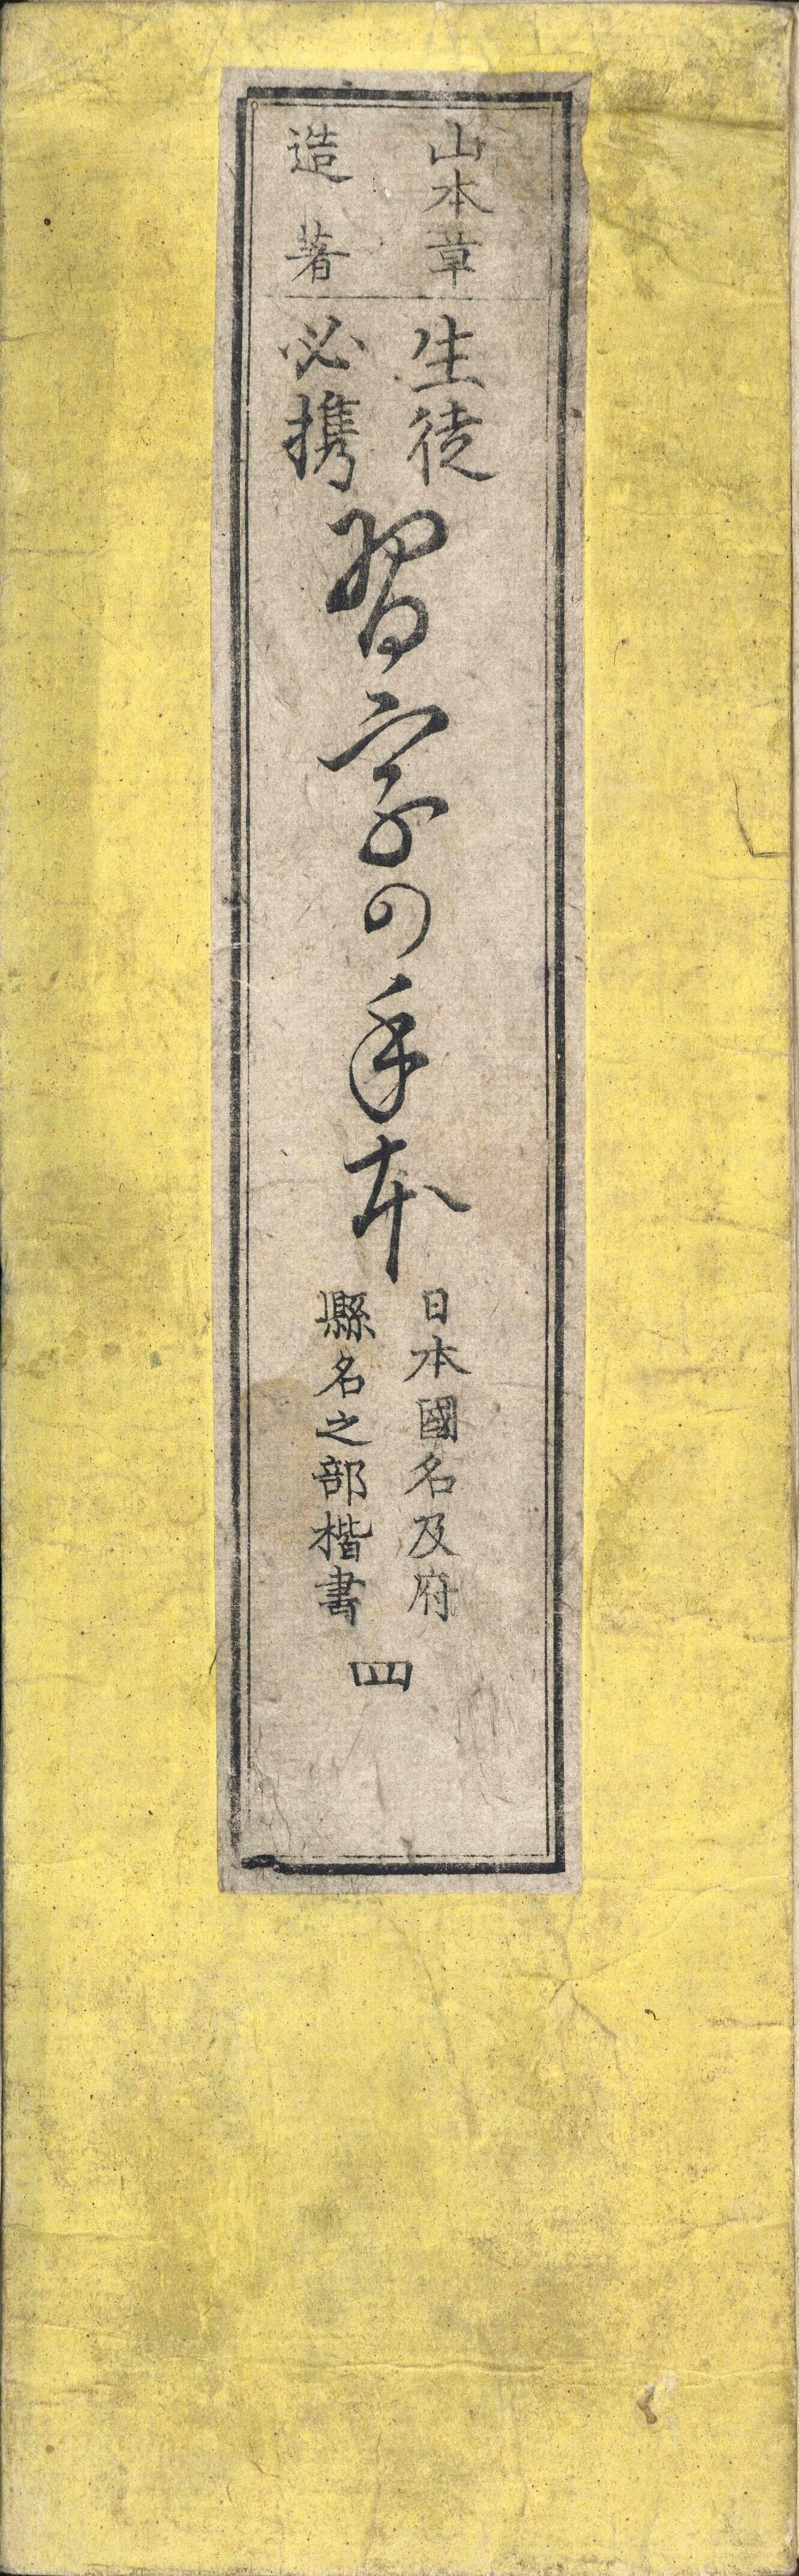 山本章
造著
生徒
必携
習字の手本
日本國名及府
縣名之部楷書
四